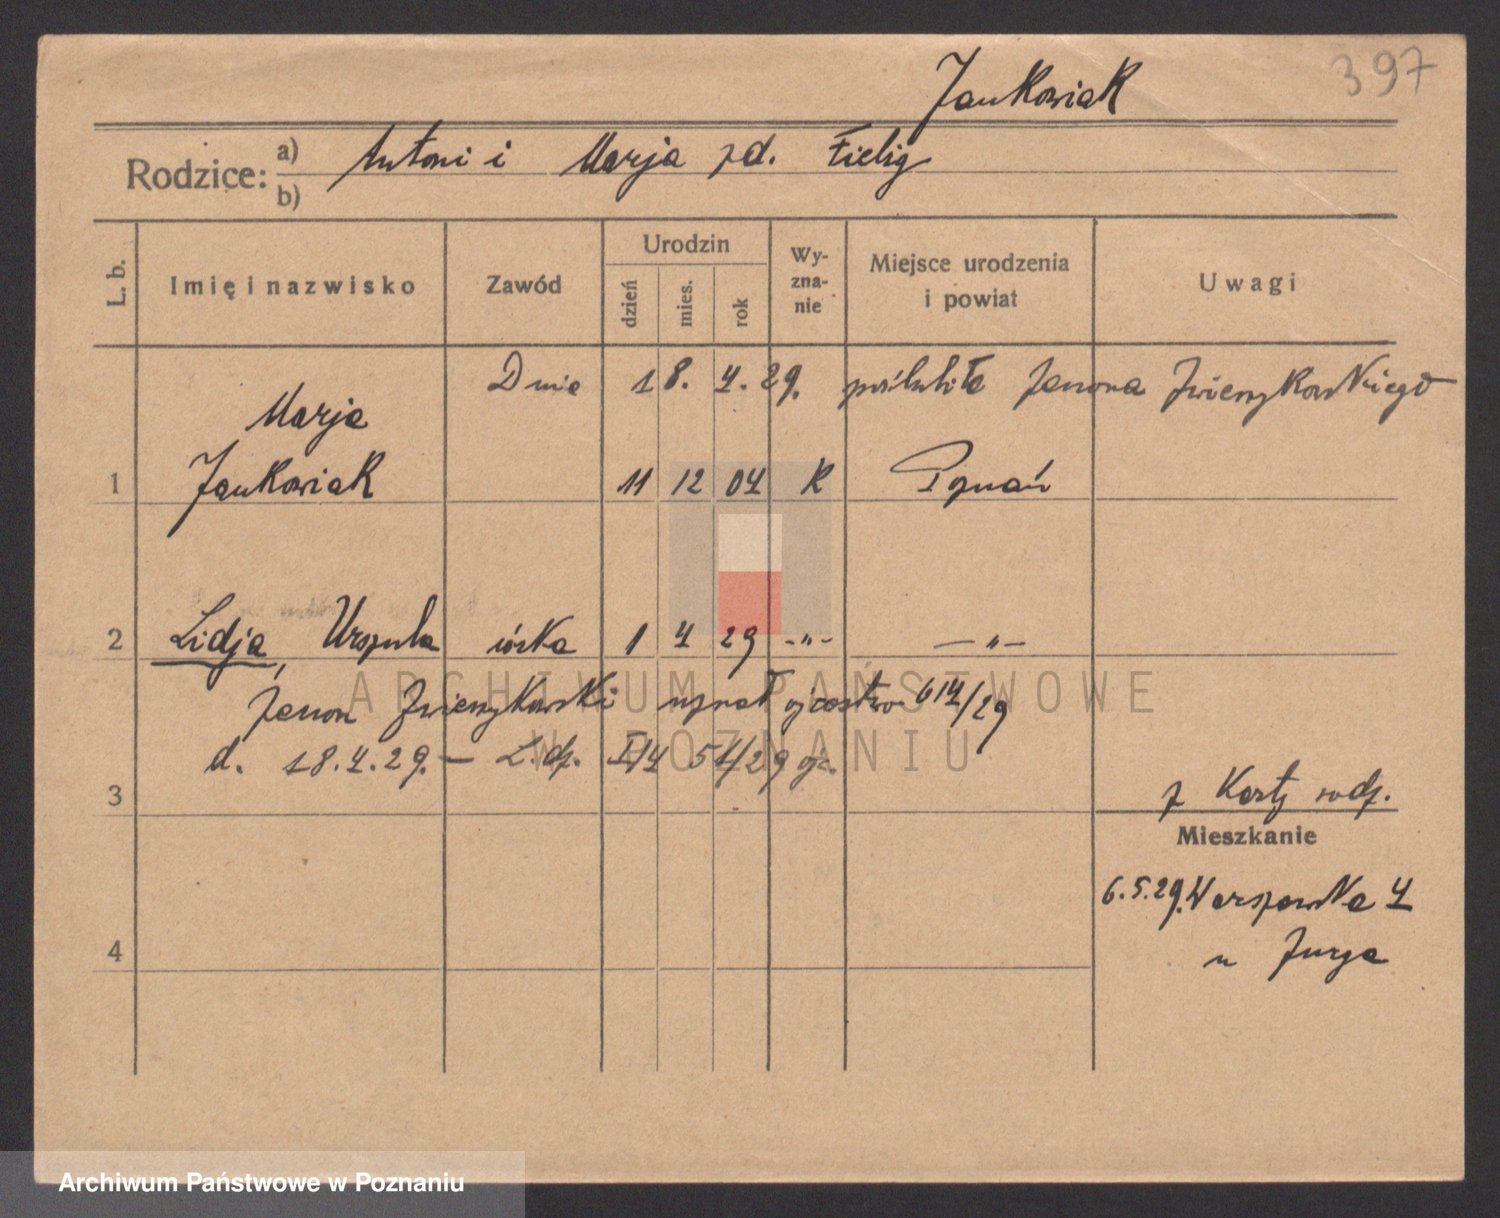 397
Jankowiak
Rodzice: a) Antoni i Marja zd. Fielig
b)
L. b. Imię i nazwisko Zawód Urodzin dzień mies. rok Wyznanie Miejsce urodzenia i powiat Uwagi
Dnia 18. 4. 29. poślubiła Zenona
Marja
1 Jankowiak 11 12 04 R Poznań
2 Lidja, Urszula córka 1 4 29 -"- -"-
Zenon uznał ojcostwo 614/29
d. 18.4.29. –
3 z Karty rodz.
Mieszkanie
6.5.29. Warszawska 4
4 u Jurga
ARCHIWUM PAŃSTWOWE
W POZNANIU
Archiwum Państwowe w Poznaniu